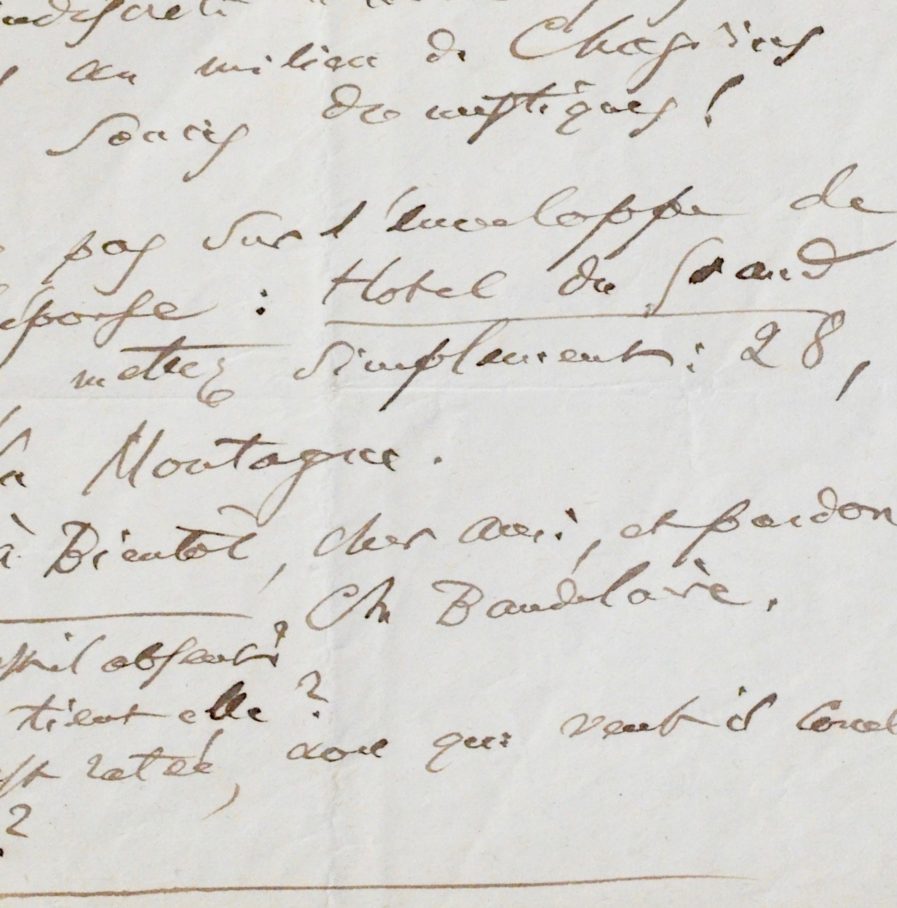 indiscret
au milieu de Chagrins
Soucis domestiques !
pas sur l'enveloppe de
réponse : Hotel du Grand
mettez simplement : 28,
la Montagne.
à Bientôt, cher ami, et pardon
Ch Baudelaire.
est-il absent ?
tient elle ?
est ratée, avec qui veut il
?